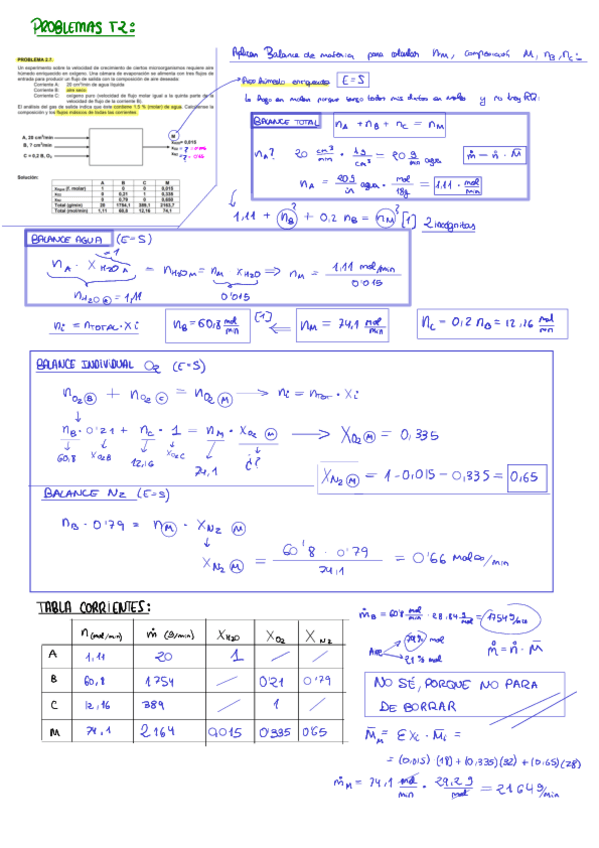 PROBLEMAS T2:
PROBLEMA 2.7.
Un experimento sobre la velocidad de crecimiento de ciertos microorganismos requiere aire
húmedo enriquecido en oxígeno. Una cámara de evaporación se alimenta con tres flujos de
entrada para producir un flujo de salida con la composición de aire deseada:
Corriente A: 20 cm³/min de agua líquida
Corriente B: aire seco
Corriente C: oxígeno puro (velocidad de flujo molar igual a la quinta parte de la
velocidad de flujo de la corriente B).
El análisis del gas de salida indica que éste contiene 1,5 % (molar) de agua. Calcúlense la
composición y los flujos másicos de todas las corrientes.
A, 20 cm³/min
B, ? cm³/min
C = 0,2 B, O₂
M
= 0,015
Solución:
A B C M
1 0 0 0,015
0 0,21 1 0,335
0 0,79 0 0,650
Total (g/min) 20 1754,1 389,1 2163,7
Total (mol/min) 1,11 60,8 12,16 74,1
Aplicar Balance de materia para calcular nM, composición M, nB, nC:
Aire húmedo enriquecido E=S
Lo hago en moles porque tengo todos mis datos en moles y no hay RQ:
BALANCE TOTAL nA + nB + nC = nM
nA? 20 cm³/min · 1g/cm³ = 20 g/min agua
ṁ = ṅ · M̄
nA = 20g/min agua · mol/18g = 1,11 · mol/min
1,11 + nB? + 0,2 nB = nM? [1] 2 incógnitas
BALANCE AGUA (E=S)
nA · XH2O A = nH2O M = nM XH2O ⇒ nM = 1,11 mol/min / 0'015
=1
nH2O A = 1,11 0'015
ni = nTOTAL · Xi nB = 60,8 mol/min [1] ⇐ nM = 74,1 mol/min nC = 0,2 nB = 12,16 mol/min
BALANCE INDIVIDUAL O2 (E=S)
nO2 B + nO2 C = nO2 M → ni = nTOT · Xi
nB · 0'21 + nC · 1 = nM · XO2 M → XO2 M = 0,335
60,8 XO2B 12,16 XO2C 74,1 ¿?
XN2 M = 1-0,015-0,335 = 0,65
BALANCE N2 (E=S)
nB · 0'79 = nM · XN2 M
XN2 M = 60'8 · 0'79 / 74,1 = 0'66 moles/min
TABLA CORRIENTES:
n (mol/min) ṁ (g/min) XH2O XO2 XN2
A 1,11 20 1 / /
B 60,8 1754 / 0'21 0'79
C 12,16 389 / 1 /
M 74,1 2164 0,015 0'335 0'65
ṁB = 60'8 mol/min · 28,84 g/mol = 1754 g/min
Aire 79% mol
21% mol
ṁ = ṅ · M̄
NO SÉ, PORQUE NO PARA
DE BORRAR
M̄M = Σ Xi · M̄i =
= (0,015) (18) + (0,335)(32) + (0,65)(28)
ṁM = 74,1 mol/min · 29,2 g/mol = 2164 g/min